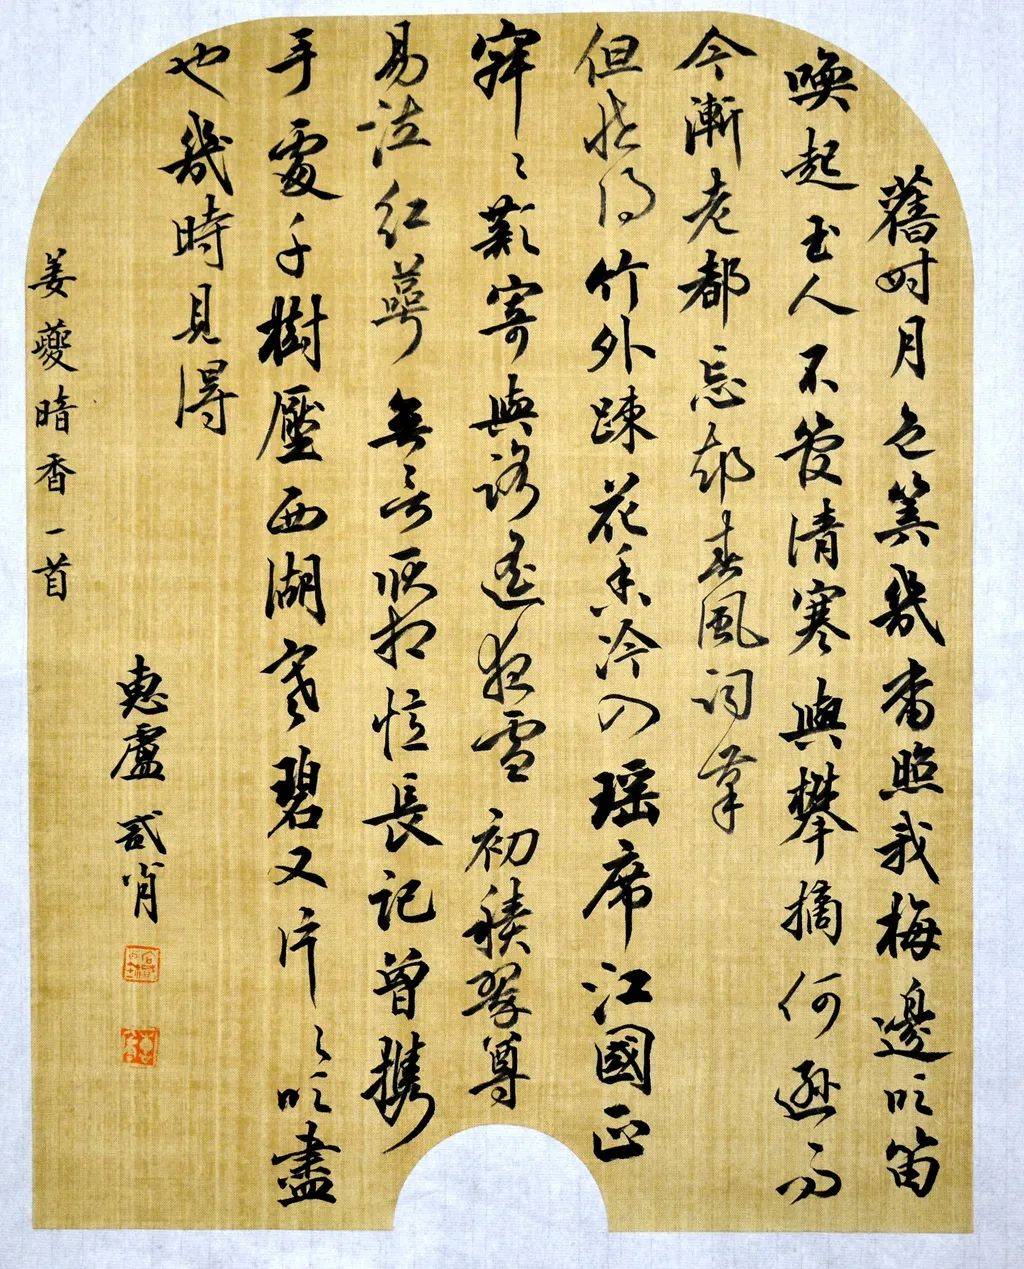 舊時月色算幾番照我梅邊吹笛
喚起玉人不管清寒與攀摘何遜而
今漸老都忘却春風詞筆
但怪得竹外踈花香冷入瑶席江國正
寂〻歎寄與路遥夜雪初積翠尊
易泣紅萼無言耿相憶長記曾携
手處千樹壓西湖寒碧又片〻吹盡
也幾時見得
姜夔暗香一首
惠盧貳肖